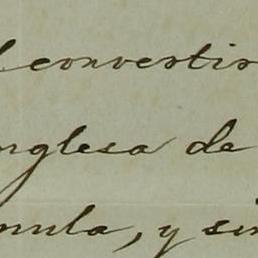 l convertir
nglesa de
mula, y sin